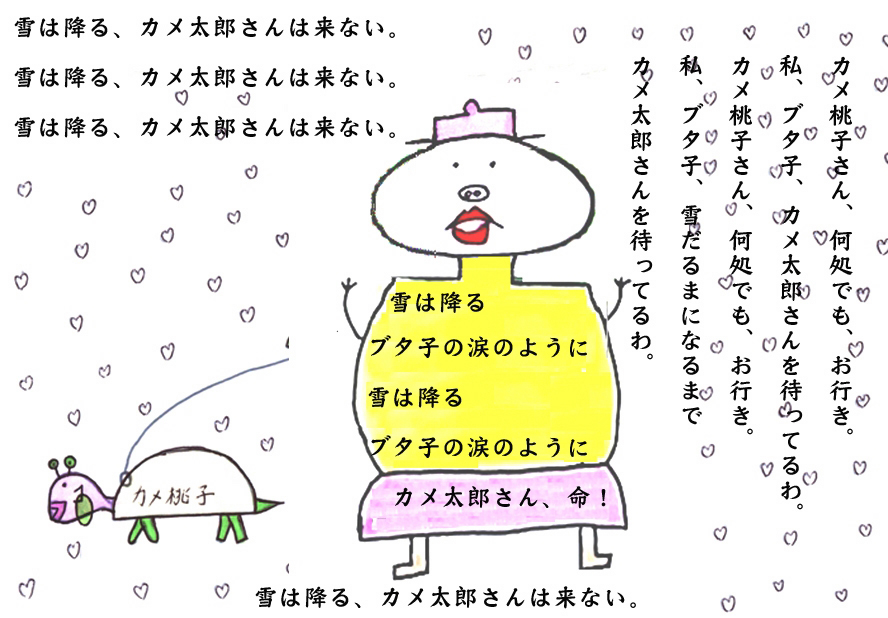 雪は降る、カメ太郎さんは来ない。
雪は降る、カメ太郎さんは来ない。
雪は降る、カメ太郎さんは来ない。
カメ桃子さん、何処でも、お行き。
私、ブタ子、カメ太郎さんを待ってるわ。
カメ桃子さん、何処でも、お行き。
私、ブタ子、雪だるまになるまで
カメ太郎さんを待ってるわ。
雪は降る
ブタ子の涙のように
雪は降る
ブタ子の涙のように
カメ太郎さん、命！
カメ桃子
雪は降る、カメ太郎さんは来ない。